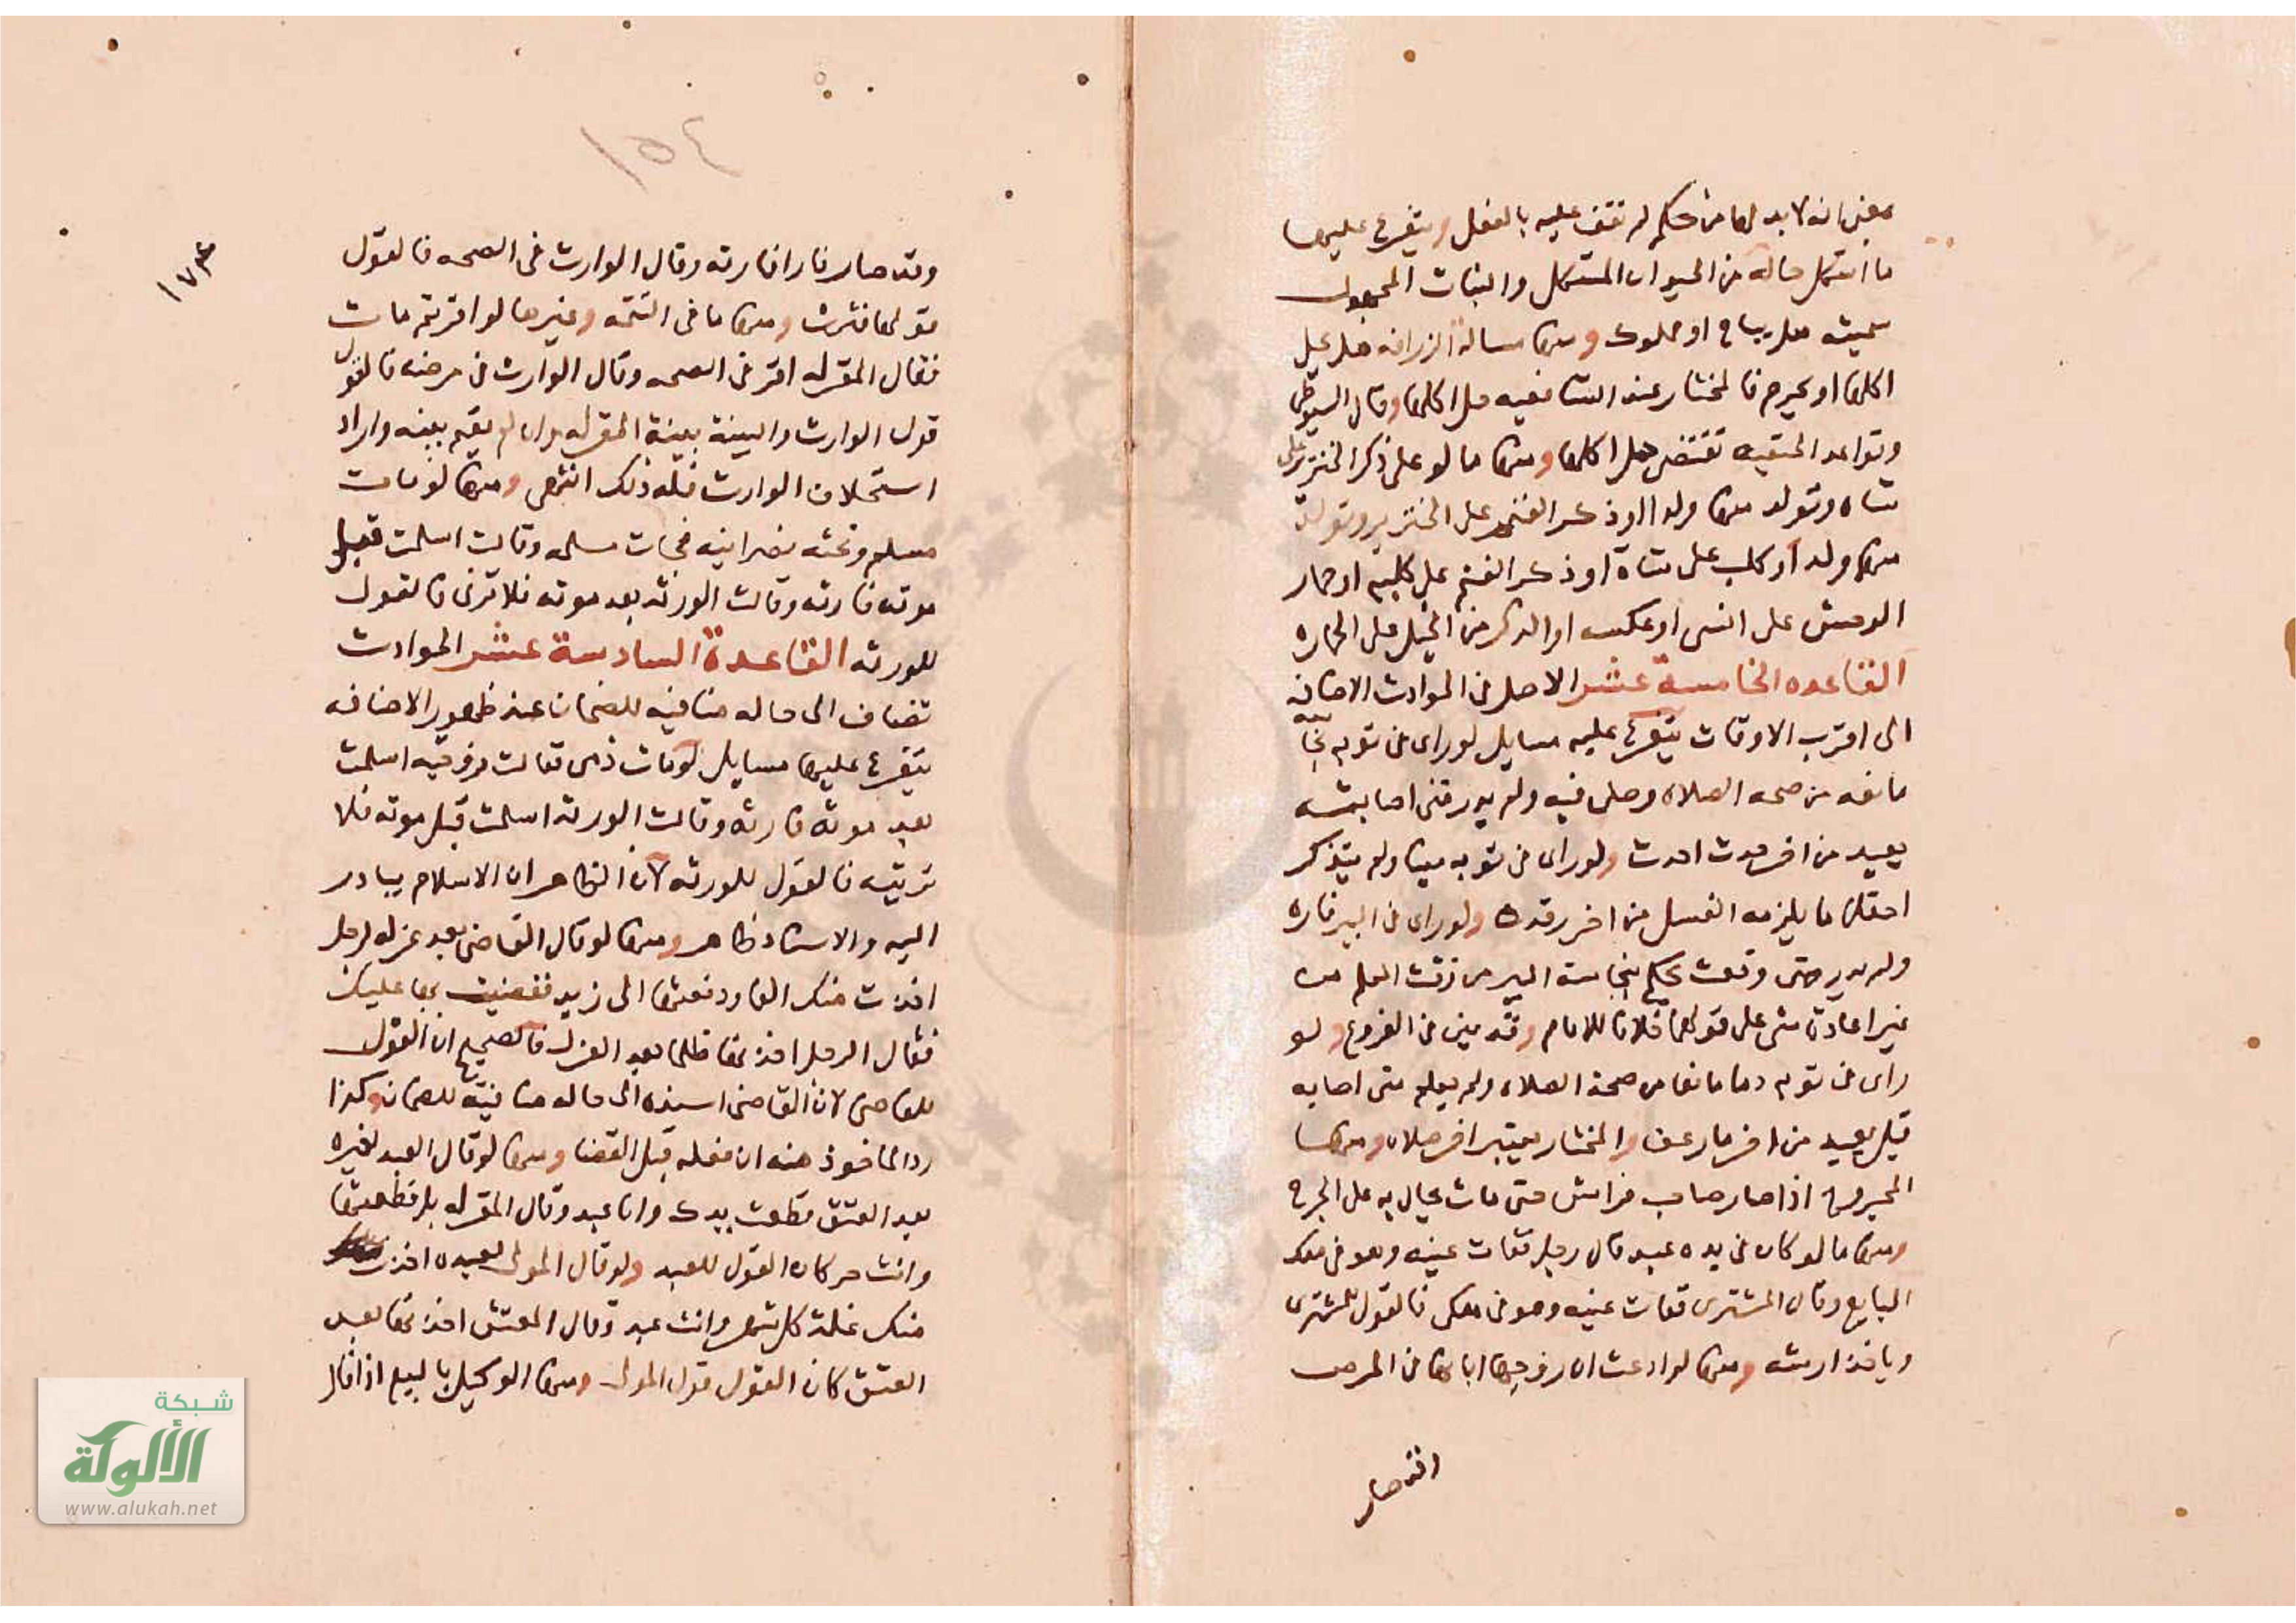 بمعنى انه لا بد لها من حكم لم نقف عليه بالفعل ويتفرع عليها
ما اشكل حاله من الحيوان المشكل والنبات المجهول
سميته هل يباح او مملوك ومنها مسالة الزرافه هل يحل
اكلها او يحرم فالمختار عند الشافعيه حل اكلها وقال السيوطي
وقواعد الحنفيه تقتضي حل اكلها ومنها ما لو على ذكر الخنزير على
شاه وتولد منها ولد او ذكر الغنم على الخنزير وتولد
منها ولد او كلب على شاة او ذكر الغنم على كلبه او حمار
الوحش على انسى او عكسه او الذكر من الخيل على الحماره
القاعده الخامسة عشر الاصل في الحوادث الاضافه
الى اقرب الاوقات يتفرع عليه مسايل لو راى في ثوبه نجاسه
مانعه من صحه الصلاه وصلى فيه ولم يدر متى اصابته
يعيد من اخر حدث احدث ولو راى في ثوبه منيا ولم يتذكر
احتلاما يلزمه الغسل من اخر رقدة ولو راى في البير فاره
ولم يدر متى وقعت يحكم بنجاسة البير من وقت العلم من
غير اعادة شى على قولهما خلافا للامام وقد بين في الفروع ولو
راى في ثوبه دما مانعا من صحة الصلاه ولم يعلم متى اصابه
قيل يعيد من اخر ما رعف والمختار يعتبر اخر صلاه ومنها
المجروح اذا صار صاحب فراش حتى مات يحال به على الجرح
ومنها ما لو كان في يده عبد قال رجل فقات عينه وهو في ملك
البايع وقال المشترى فقات عينه وهو في ملكى فالقول للمشترى
وياخذ ارشه ومنها لو ادعت ان زوجها ابانها في المرض
وقد صار
١٥٤
١٧٣
وقد صار فارا فارثه وقال الوارث في الصحه فالقول
قولها فترث ومنها ما في التتمه وغيرها لو اقر ثم مات
فقال المقر له اقر في الصحه وقال الوارث في مرضه فالقول
قول الوارث والبينة بينة المقر له وان لم يقم بينه واراد
استحلاف الوارث فله ذلك انتهى ومنها لو مات
مسلم وتحته نصرانيه فجات مسلمه وقالت اسلمت قبل
موته فارثه وقالت الورثه بعد موته فلا ترث فالقول
للورثه القاعدة السادسة عشر الحوادث
تضاف الى حاله منافيه للضمان عند ظهور الاضافه
يتفرع عليها مسايل لو مات ذمى فقالت زوجته اسلمت
بعد موته فارثه وقالت الورثه اسلمت قبل موته فلا
ترثيه فالقول للورثه لان الظاهر ان الاسلام يبادر
اليه والاسناد ظاهر ومنها لو قال القاضى بعد عزله لرجل
اخذت منك الفا ودفعتها الى زيد فقضيت بها عليك
فقال الرجل اخذتها ظلما بعد العزل فالصحيح ان القول
للقاضى لان القاضى اسنده الى حاله منافية للضمان وكذا
رد الماخوذ منه ان فعله قبل القضا ومنها لو قال العبد لغيره
بعد العتق قطعت يدك وانا عبد وقال المقر له بل قطعتها
وانت حر كان القول للعبد ولو قال المولى لعبده اخذت
منك غلة كل شهر وانت عبد وقال المعتق اخذتها بعد
العتق كان القول قول المولى ومنها الوكيل بالبيع اذا قال
شبكة
الألوكة
www.alukah.net